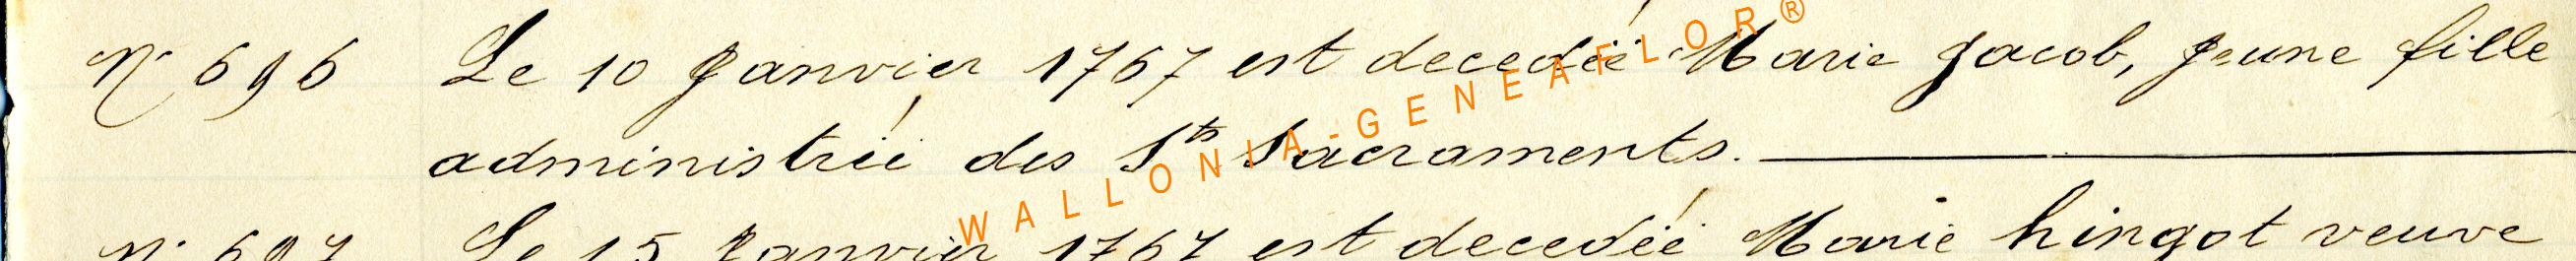 N° 696 Le 10 Janvier 1767 est decedée Marie Jacob, Jeune fille
administrée des Sts Sacraments.
N° 697 Le 15 Janvier 1767 est decedée Marie hingot veuve
WALLONIA-GENEAFLOR®